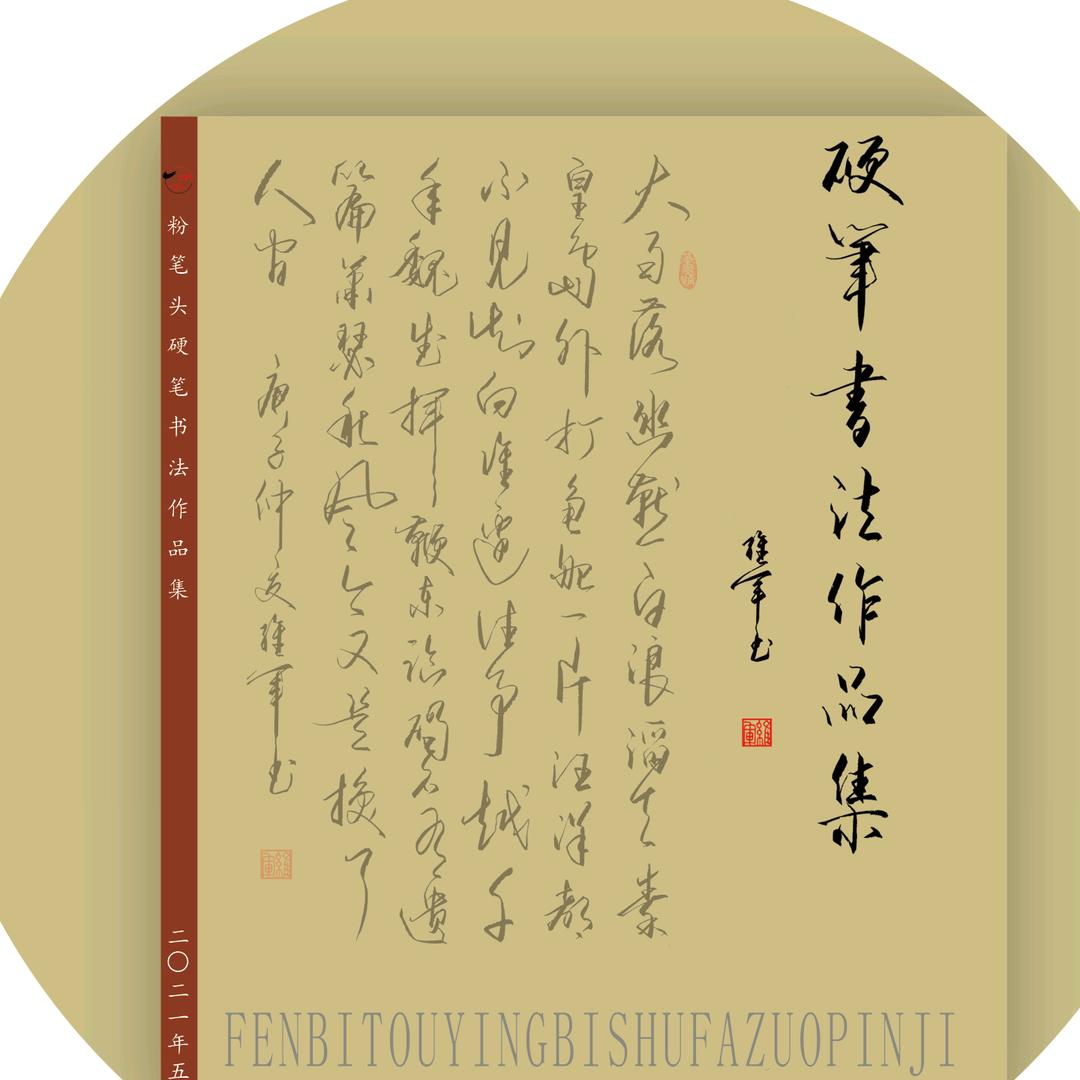 硬筆書法作品集
維军书
維軍
大雨落幽燕白浪滔天秦
皇島外打鱼船一片汪洋都
不見知向誰邊往事越千
年魏武揮鞭東臨碣石有遺
篇蕭瑟秋風今又是換了
人间 庚子仲夏維军书
維軍
粉笔头硬笔书法作品集
二〇二一年五
FENBITOUYINGBISHUFAZUOPINJI